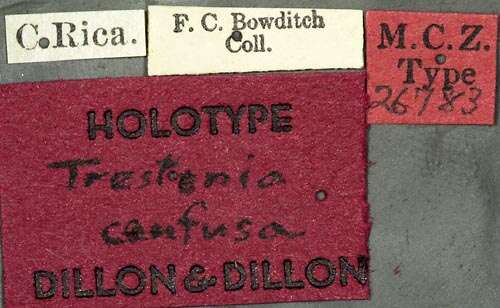 C.Rica.
F. C. Bowditch
Coll.
M. C. Z.
Type
26783
HOLOTYPE
Trestonia
confusa
DILLON & DILLON